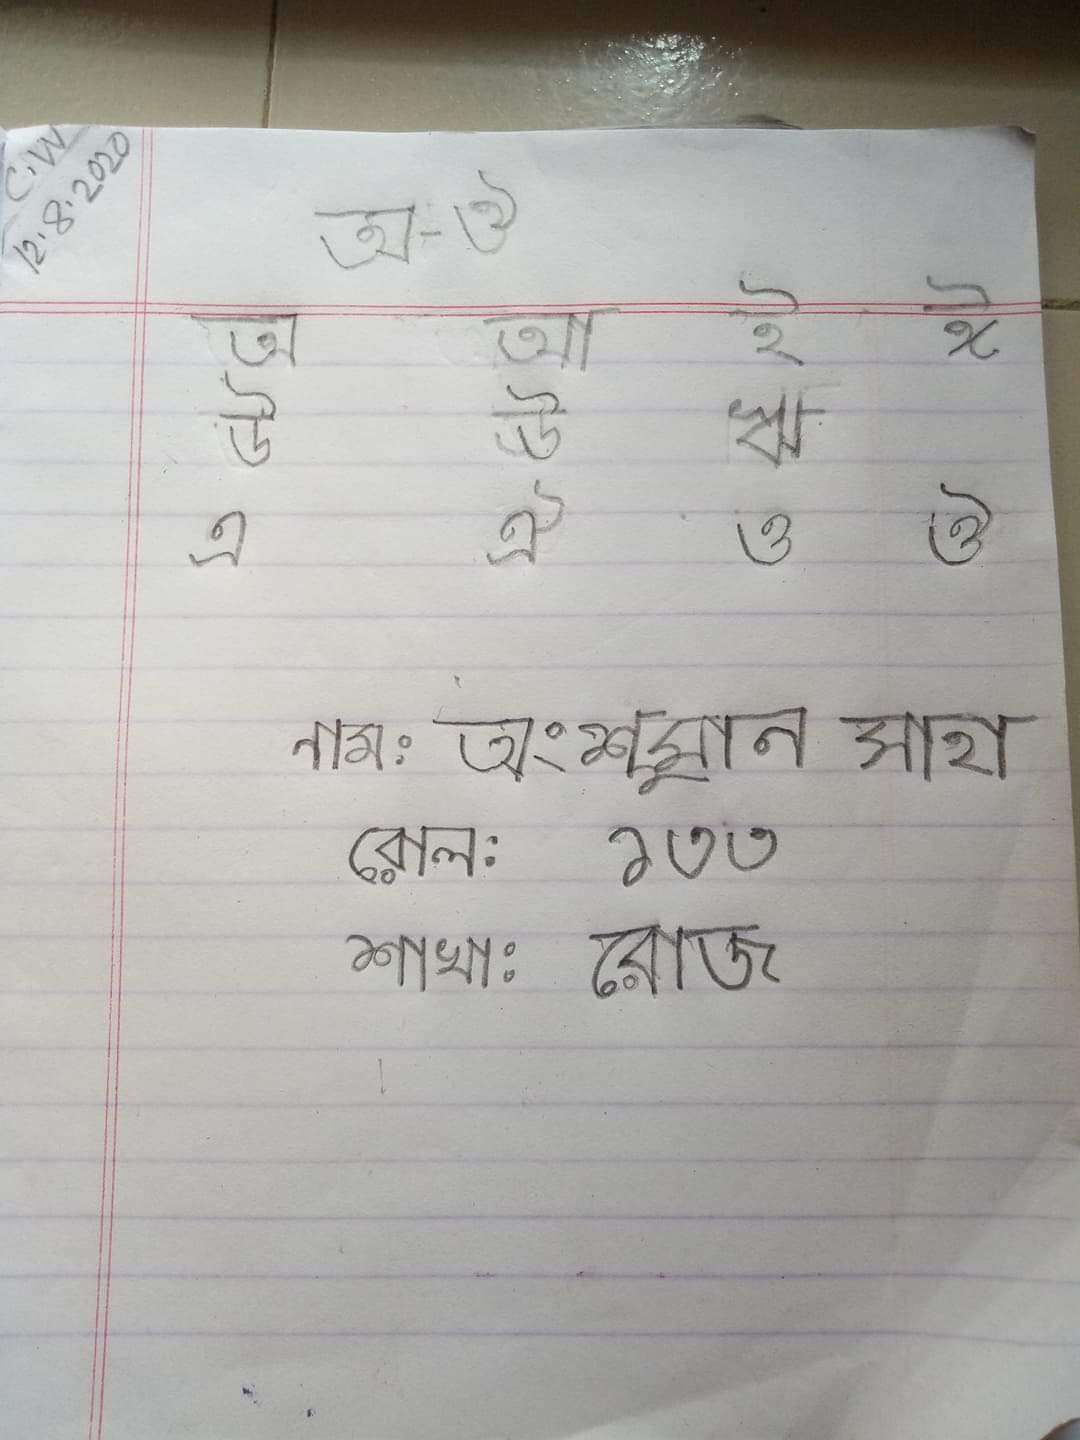 C.W
12.8.2020
অ-ঔ
অ আ ই ঈ
উ ঊ ঋ
এ ঐ ও ঔ
নামঃ অংশুমান সাহা
রোলঃ ১৩৩
শাখাঃ রোজ